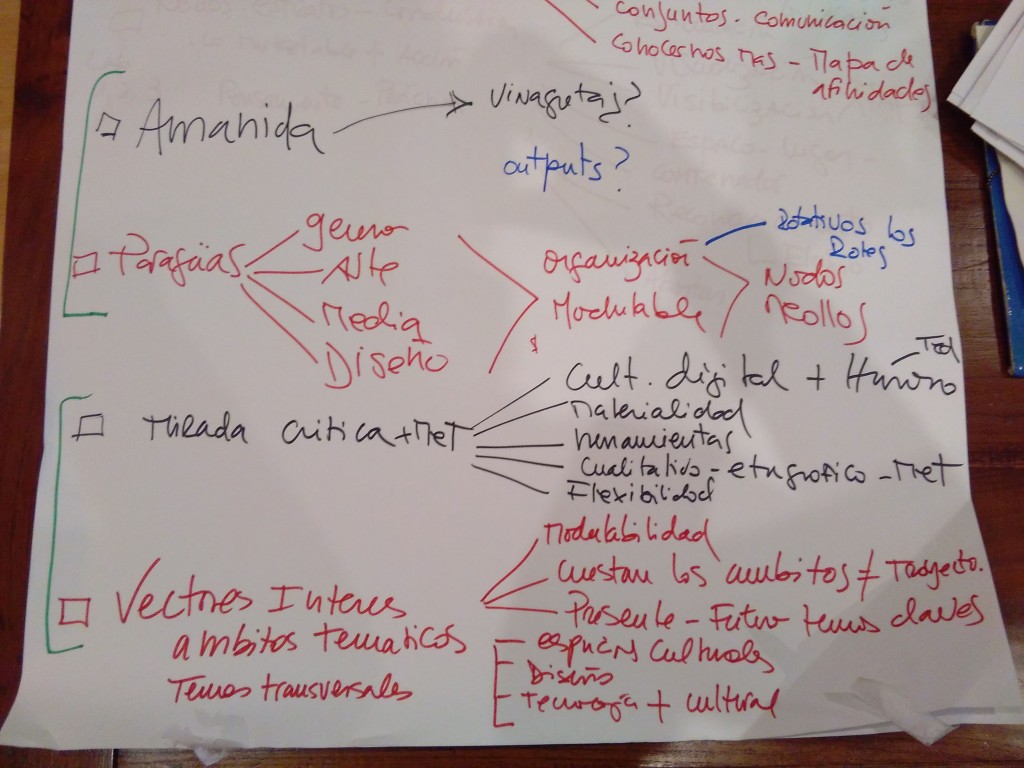 conjuntos. comunicación
conocernos mas - Mapa de
afinidades
Amanida
vinagretas?
outputs?
Paragüas
genero
Arte
Media
Diseño
organización
Modulable
Rotativos los
Roles
Nodos
Meollos
$
Mirada critica + Met
Cult. digital + Humano
Materialidad
herramientas
Cualitativo - etnografico - Met
Flexibilidad
Vectores Interes
ambitos tematicos
Temas transversales
Modulabilidad
los ambitos ≠
Presente - Futuro temas claves
espacios Culturales
Diseño
Tecnologia + cultural